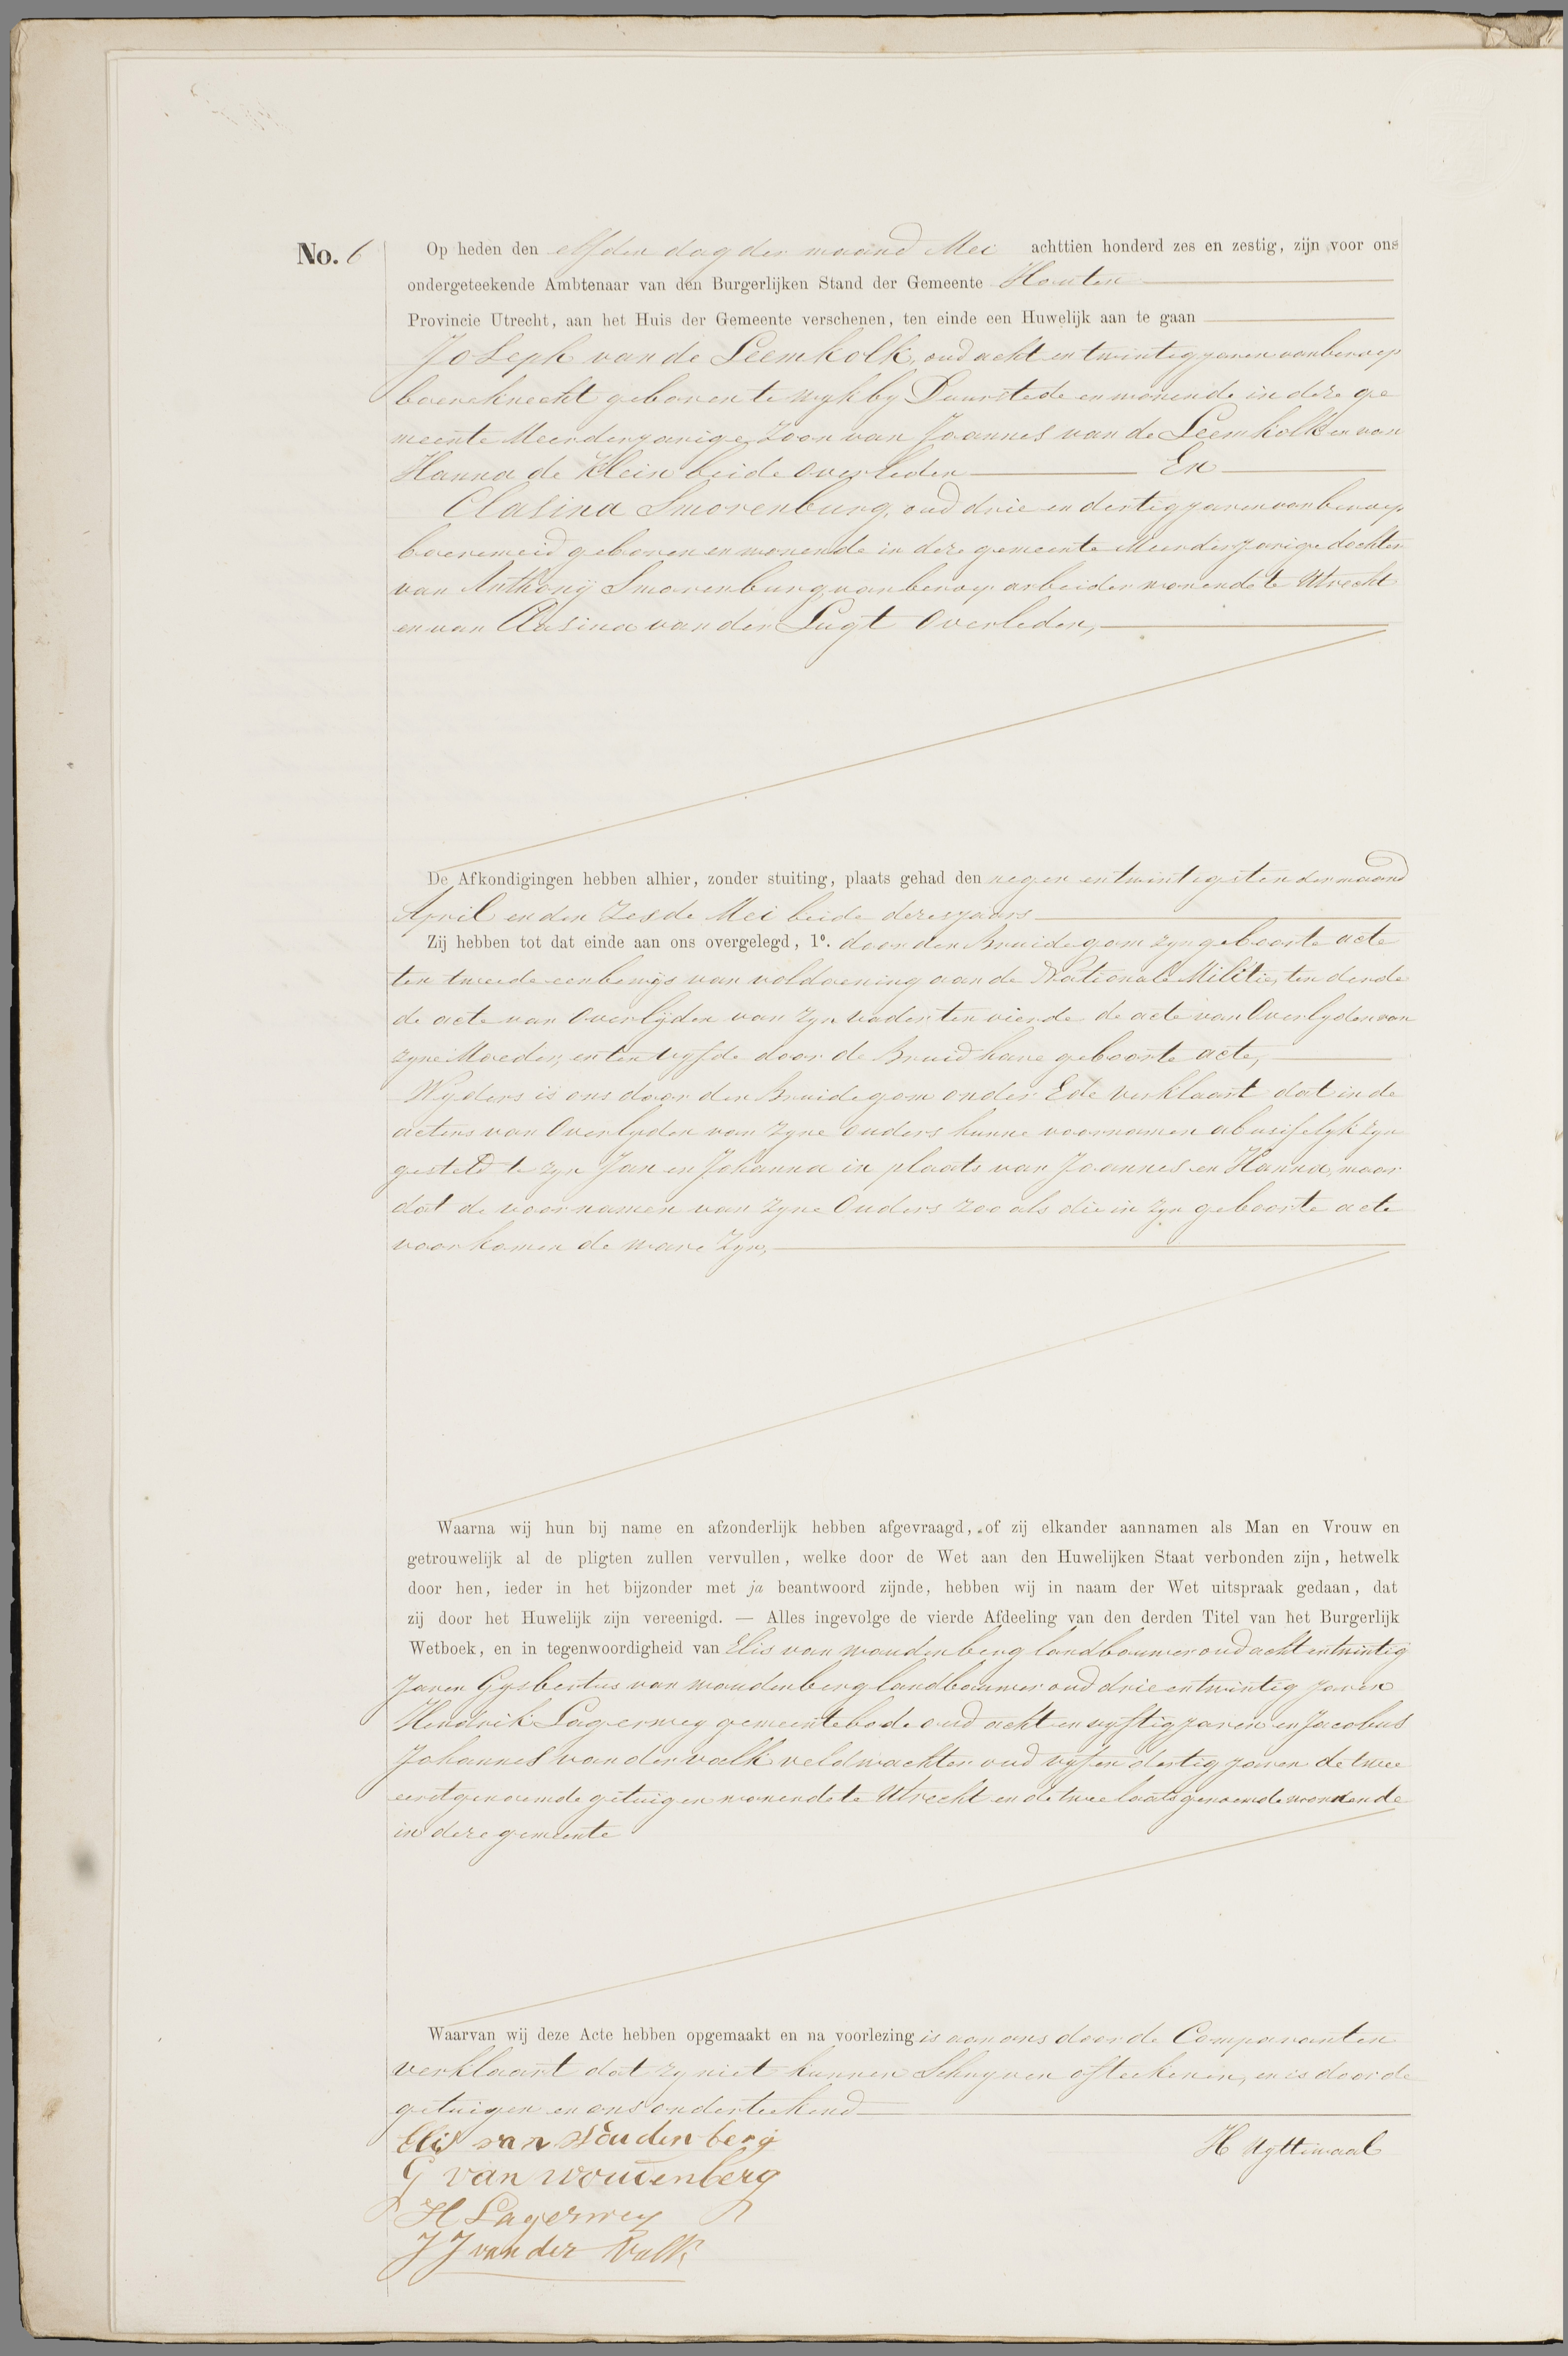 No. 6
Op heden den elfden dag der maand Mei achttien honderd zes en zestig, zijn voor ons
ondergeteekende Ambtenaar van den Burgerlijken Stand der Gemeente Houten
Provincie Utrecht, aan het Huis der Gemeente verschenen, ten einde een Huwelijk aan te gaan
Joseph van de Leemkolk, oud acht en twintig jaren van beroep
boereknecht geboren te Wyk by Duurstede en wonende in deze ge
meente Meerderjarige Zoon van Joannes van de Leemkolk en van
Hanna de Klein beide Overleden En
Clasina Smorenburg, oud drie en dertig jaren van beroep
boeremeid geboren en wonende in deze gemeente Meerderjarige dochter
van Anthonij Smorenburg van beroep arbeider wonende te Utrecht
en van Clasina van der Lugt Overleden,
De Afkondigingen hebben alhier, zonder stuiting, plaats gehad den negen en twintigsten der maand
April en den Zesde Mei beide dezesjaars
Zij hebben tot dat einde aan ons overgelegd, 1º. door den Bruidegom zyn geboorte acte
ten tweede een bewys van voldoening aan de Nationale Militie, ten derde
de acte van Overlyden van zyn vader ten vierde de acte van Overlyden van
zyne Moeder, en ten vyfde door de Bruid hare geboorte acte,
Wyders is ons door den Bruidegom onder Ede verklaart dat in de
actens van Overlyden van zyne Ouders hunne voornamen abusifelyk zyn
gesteld te zyn Jan en Johanna in plaats van Joannes en Hanna, maar
dat de voornamen van zyne Ouders zoo als die in zyn geboorte acte
voorkomen de ware Zyn,
Waarna wij hun bij name en afzonderlijk hebben afgevraagd, of zij elkander aannamen als Man en Vrouw en
getrouwelijk al de pligten zullen vervullen, welke door de Wet aan den Huwelijken Staat verbonden zijn, hetwelk
door hen, ieder in het bijzonder met ja beantwoord zijnde, hebben wij in naam der Wet uitspraak gedaan, dat
zij door het Huwelijk zijn vereenigd. — Alles ingevolge de vierde Afdeeling van den derden Titel van het Burgerlijk
Wetboek, en in tegenwoordigheid van Elis van Woudenberg landbouwer oud acht en twintig
Jaren Gysbertus van Woudenberg landbouwer oud drie en twintig jaren
Hendrik Lagerwey gemeentebode oud acht en vyftig jaren en Jacobus
Johannes van der Valk veldwachter oud vyf en dertig jaren de twee
eerstgenoemde getuigen wonende te Utrecht en de twee laatsgenoemde wonende
in deze gemeente
Waarvan wij deze Acte hebben opgemaakt en na voorlezing is aan ons door de Comparanten
verklaart dat zy niet kunnen Schryven of teekenen, en is door de
getuigen en ons onderteekend
Elis van Woudenberg
H Uyttewaal
G van Woudenberg
H Lagerwey
J J van der Valk